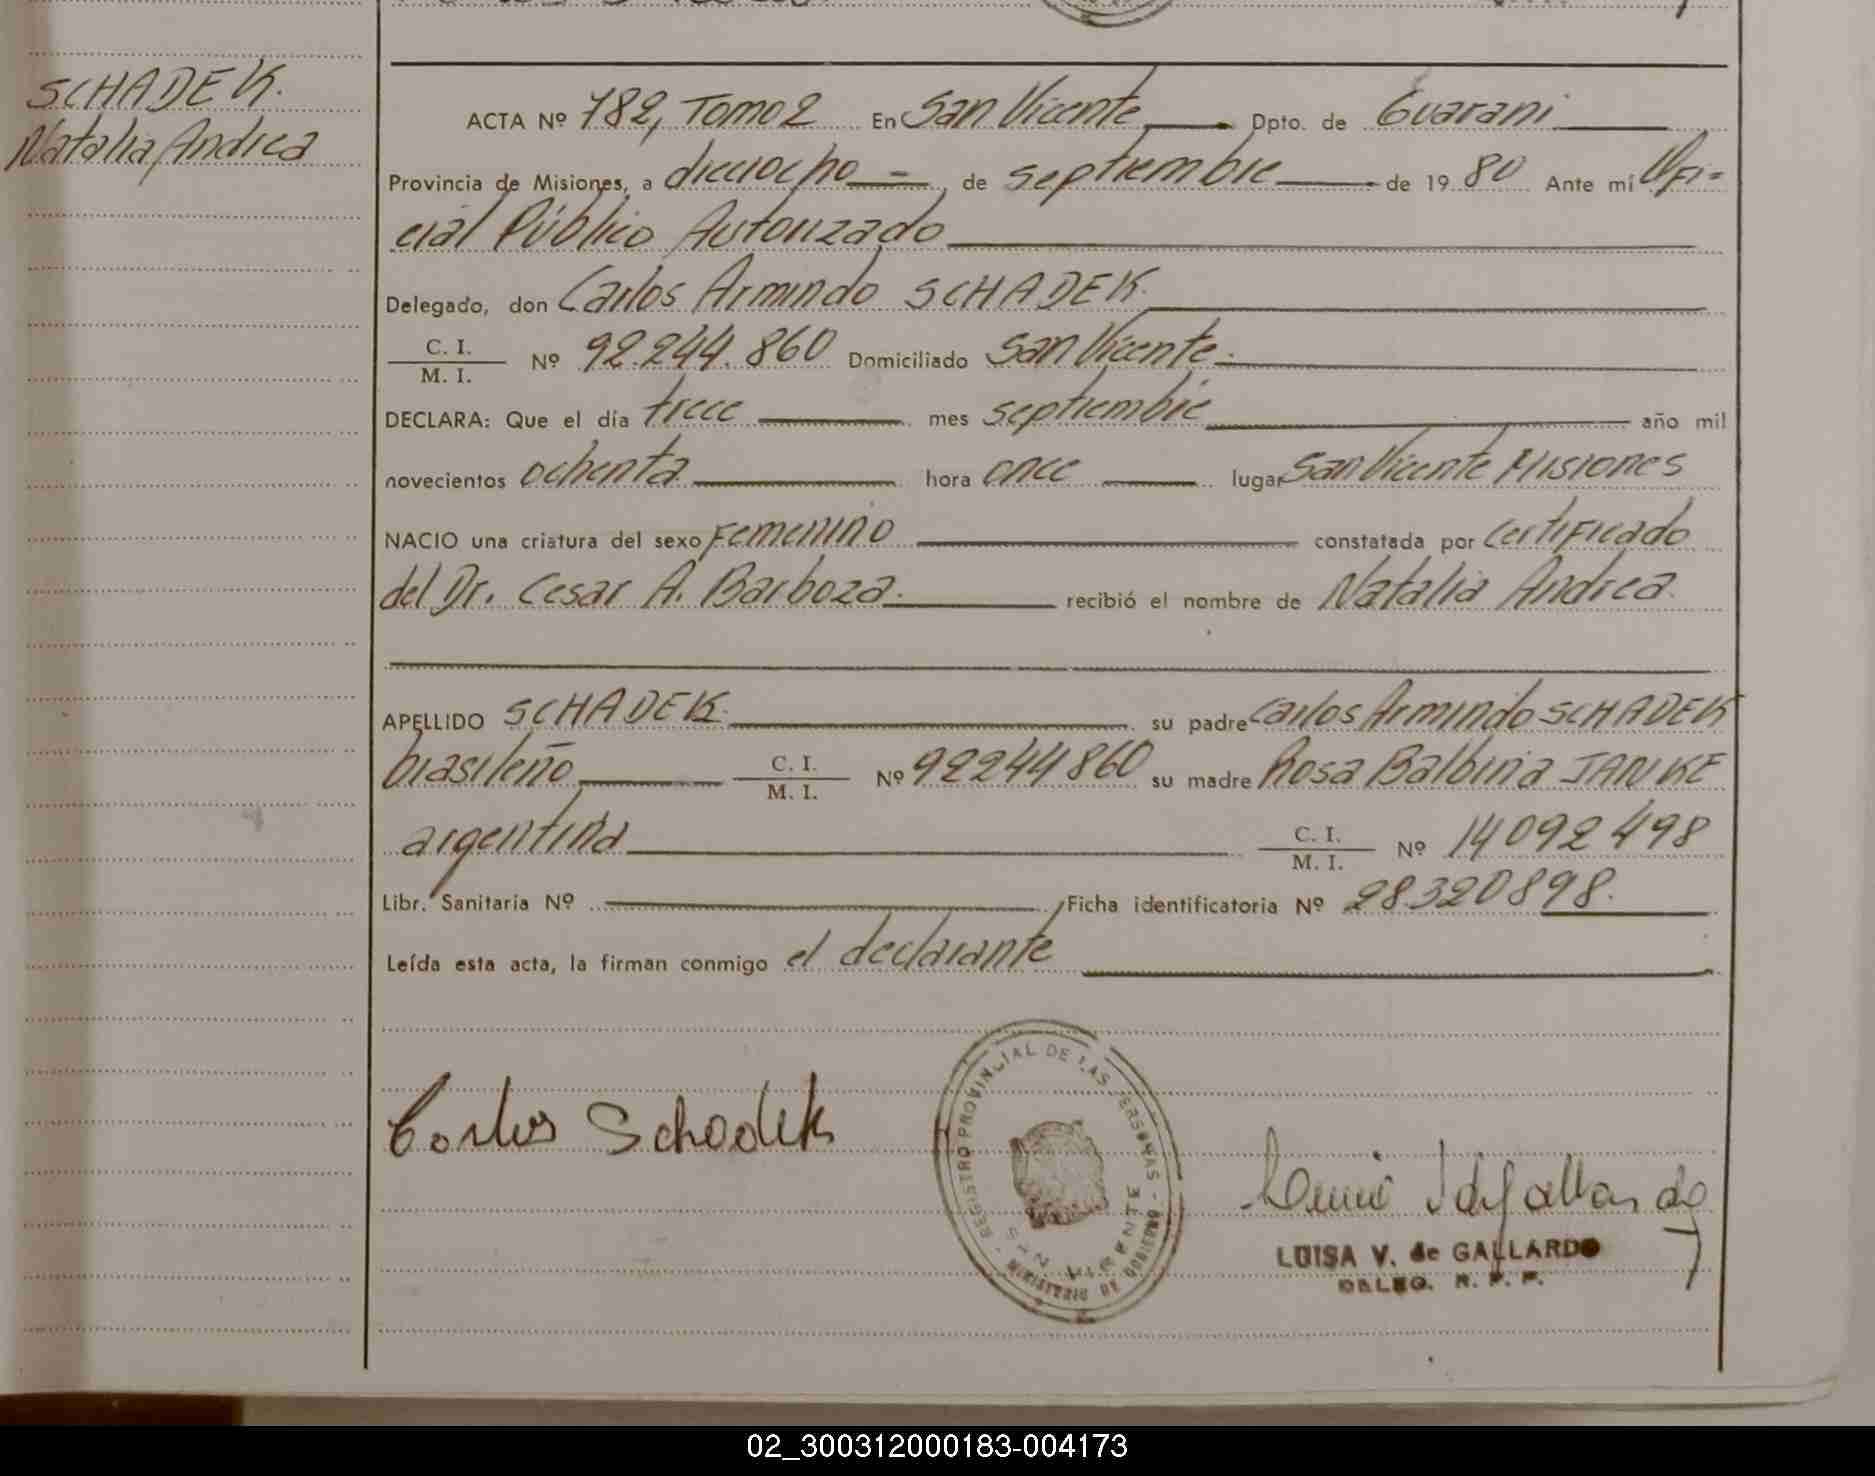 SCHADEK.
Natalia Andrea
ACTA Nº 782, Tomo 2 En San Vicente Dpto. de Guarani
Provincia de Misiones, a dieciocho de septiembre de 19 80 Ante mí Ofi-
cial Público Autorizado
Delegado, don Carlos Armindo SCHADEK.
C. I.
M. I. Nº 92.244.860 Domiciliado San Vicente.
DECLARA: Que el día trece mes septiembre año mil
novecientos ochenta hora once lugar San Vicente Misiones
NACIO una criatura del sexo Femenino constatada por certificado
del Dr. Cesar A. Barboza. recibió el nombre de Natalia Andrea.
APELLIDO SCHADEK. su padre Carlos Armindo SCHADEK
brasileño C. I.
M. I. Nº 92244860 su madre Rosa Balbina JANKE
argentina C. I.
M. I. Nº 14092498
Libr. Sanitaria Nº Ficha identificatoria Nº 28320898.
Leída esta acta, la firman conmigo el declarante
Carlos Schadek
REGISTRO PROVINCIAL DE LAS PERSONAS
MINISTERIO DE GOBIERNO
SAN VICENTE
LUISA V. de GALLARDO
DELEG. R. P. P.
02_300312000183-004173